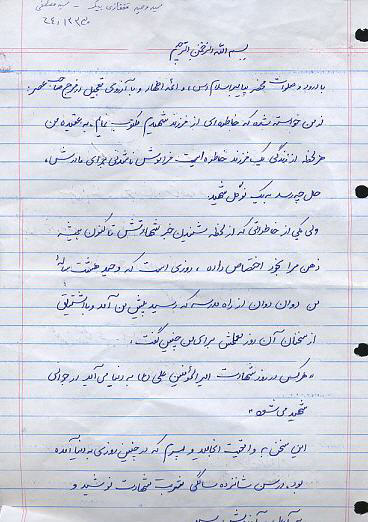 سید وحید غفاری بیگ - سید مصطفی
بسم الله الرحمن الرحیم
با درود و صلوات محضر پیامبر اسلام (ص) و ائمه اطهار و با آرزوی تعجیل در فرج صاحب عصر،
از من خواسته شده که خاطره‌ای از فرزند شهیدم مکتوب نمایم. به عقیده من
هر لحظه از زندگی یک فرزند خاطره‌ایست فراموش ناشدنی برای مادرش،
حال چه رسد به یک نوگل شهید.
ولی یکی از خاطراتی که از لحظه شنیدن خبر شهادتش تا کنون همیشه
ذهن مرا بخود اختصاص داده، روزی است که وحید هشت ساله
من دوان دوان از راه مدرسه که رسید پیش من آمد و با اشتیاق
از سخنان آن روز معلمش برای من چنین گفت:
«هر کس در روز شهادت امیرالمؤمنین علی به دنیا می‌آید در جوانی
شهید می‌شود»
این سخن به واقعیت انجامید و پسرم که در چنین روزی به دنیا آمده
بود، در سن شانزده سالگی شربت شهادت نوشید و